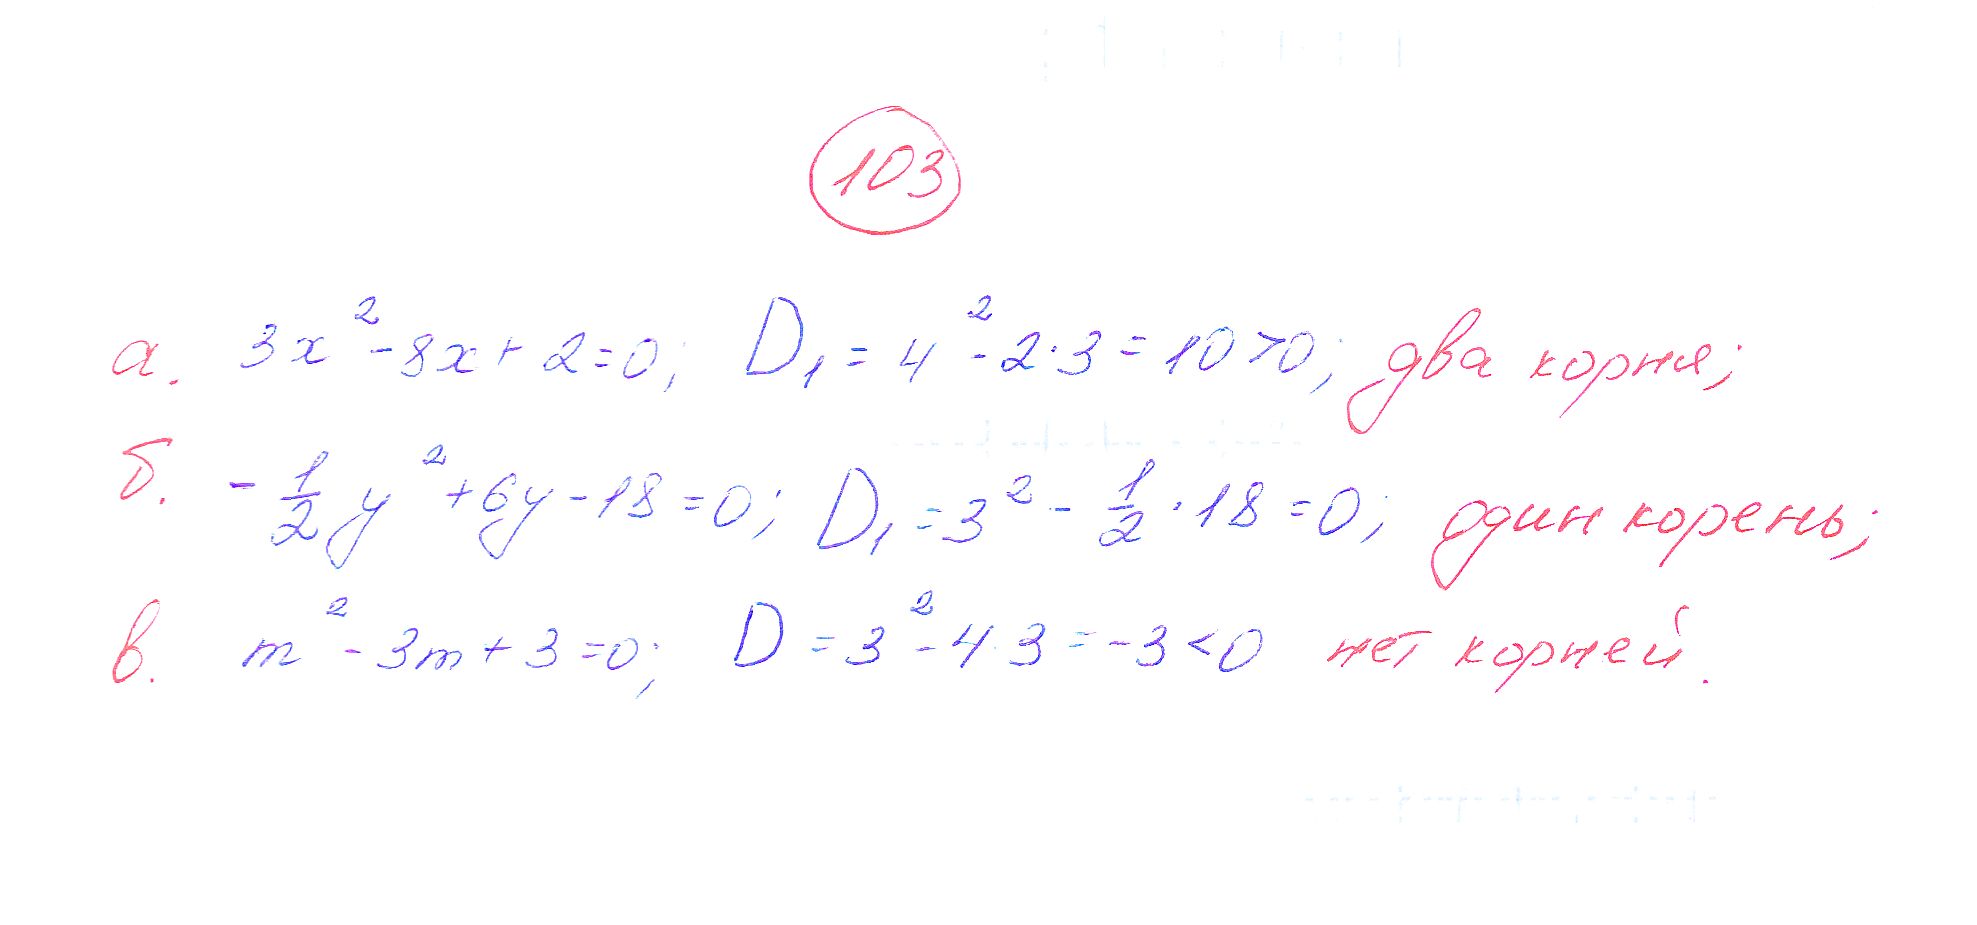 103
а. 3x² - 8x + 2 = 0; D₁ = 4² - 2·3 = 10 > 0; два корня;
б. -1/2 y² + 6y - 18 = 0; D₁ = 3² - 1/2·18 = 0; один корень;
в. m² - 3m + 3 = 0; D = 3² - 4·3 = -3 < 0 нет корней.